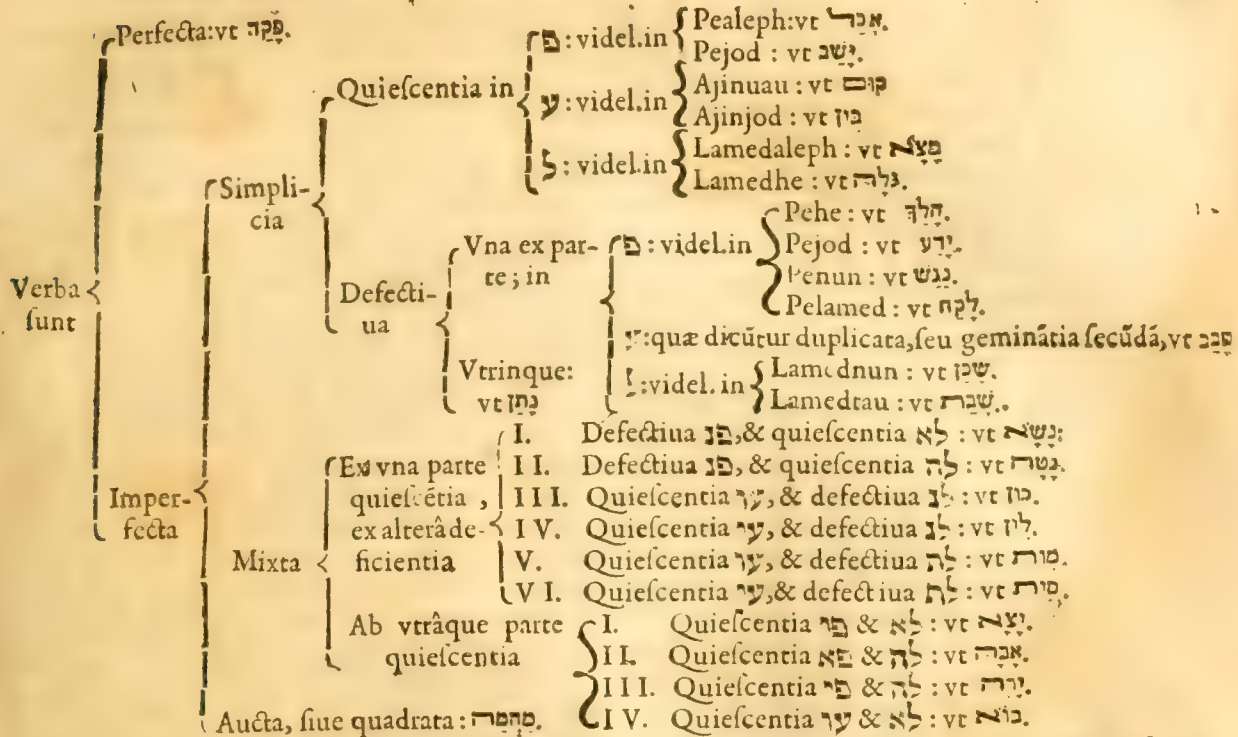 Perfecta: vt פָּקַד.
Quieſcentia in
פ: videl. in
Pealeph: vt אָכַל.
Pejod: vt יָשַׁב.
ע: videl. in
Ajinuau: vt קוּם
Ajinjod: vt בִּין
ל: videl. in
Lamedaleph: vt מָצָא
Lamedhe: vt גָּלָה.
Simpli-
cia
Pehe: vt הָלַךְ.
Vna ex par-
te; in
פ: videl. in
Pejod: vt יָדַע.
Penun: vt נָגַשׁ.
Pelamed: vt לָקַח.
Verba
ſunt
Defecti-
ua
ע: quæ dicũtur duplicata, ſeu geminãtia ſecũdã, vt סָבַב
Vtrinque:
vt נָתַן
ל: videl. in
Lamednun: vt שָׁכַן.
Lamedtau: vt שָׁבַת.
Imper-
fecta
Mixta
Ex vna parte
quieſcẽtia,
ex alterâ de-
ficientia
I. Defectiua פנ, & quieſcentia לא: vt נָשָׂא:
II. Defectiua פנ, & quieſcentia לה: vt נָטָה.
III. Quieſcentia עו, & defectiua לנ: vt כון.
IV. Quieſcentia עי, & defectiua לנ: vt לִין.
V. Quieſcentia עו, & defectiua לת: vt מות.
VI. Quieſcentia עי, & defectiua לת: vt סִית.
Ab vtrâque parte
quieſcentia
I. Quieſcentia פי & לא: vt יָצָא.
II. Quieſcentia פא & לה: vt אָבָה.
III. Quieſcentia פי & לה: vt יָרָה.
IV. Quieſcentia עו & לא: vt בוא.
Aucta, ſiue quadrata: מהמה.